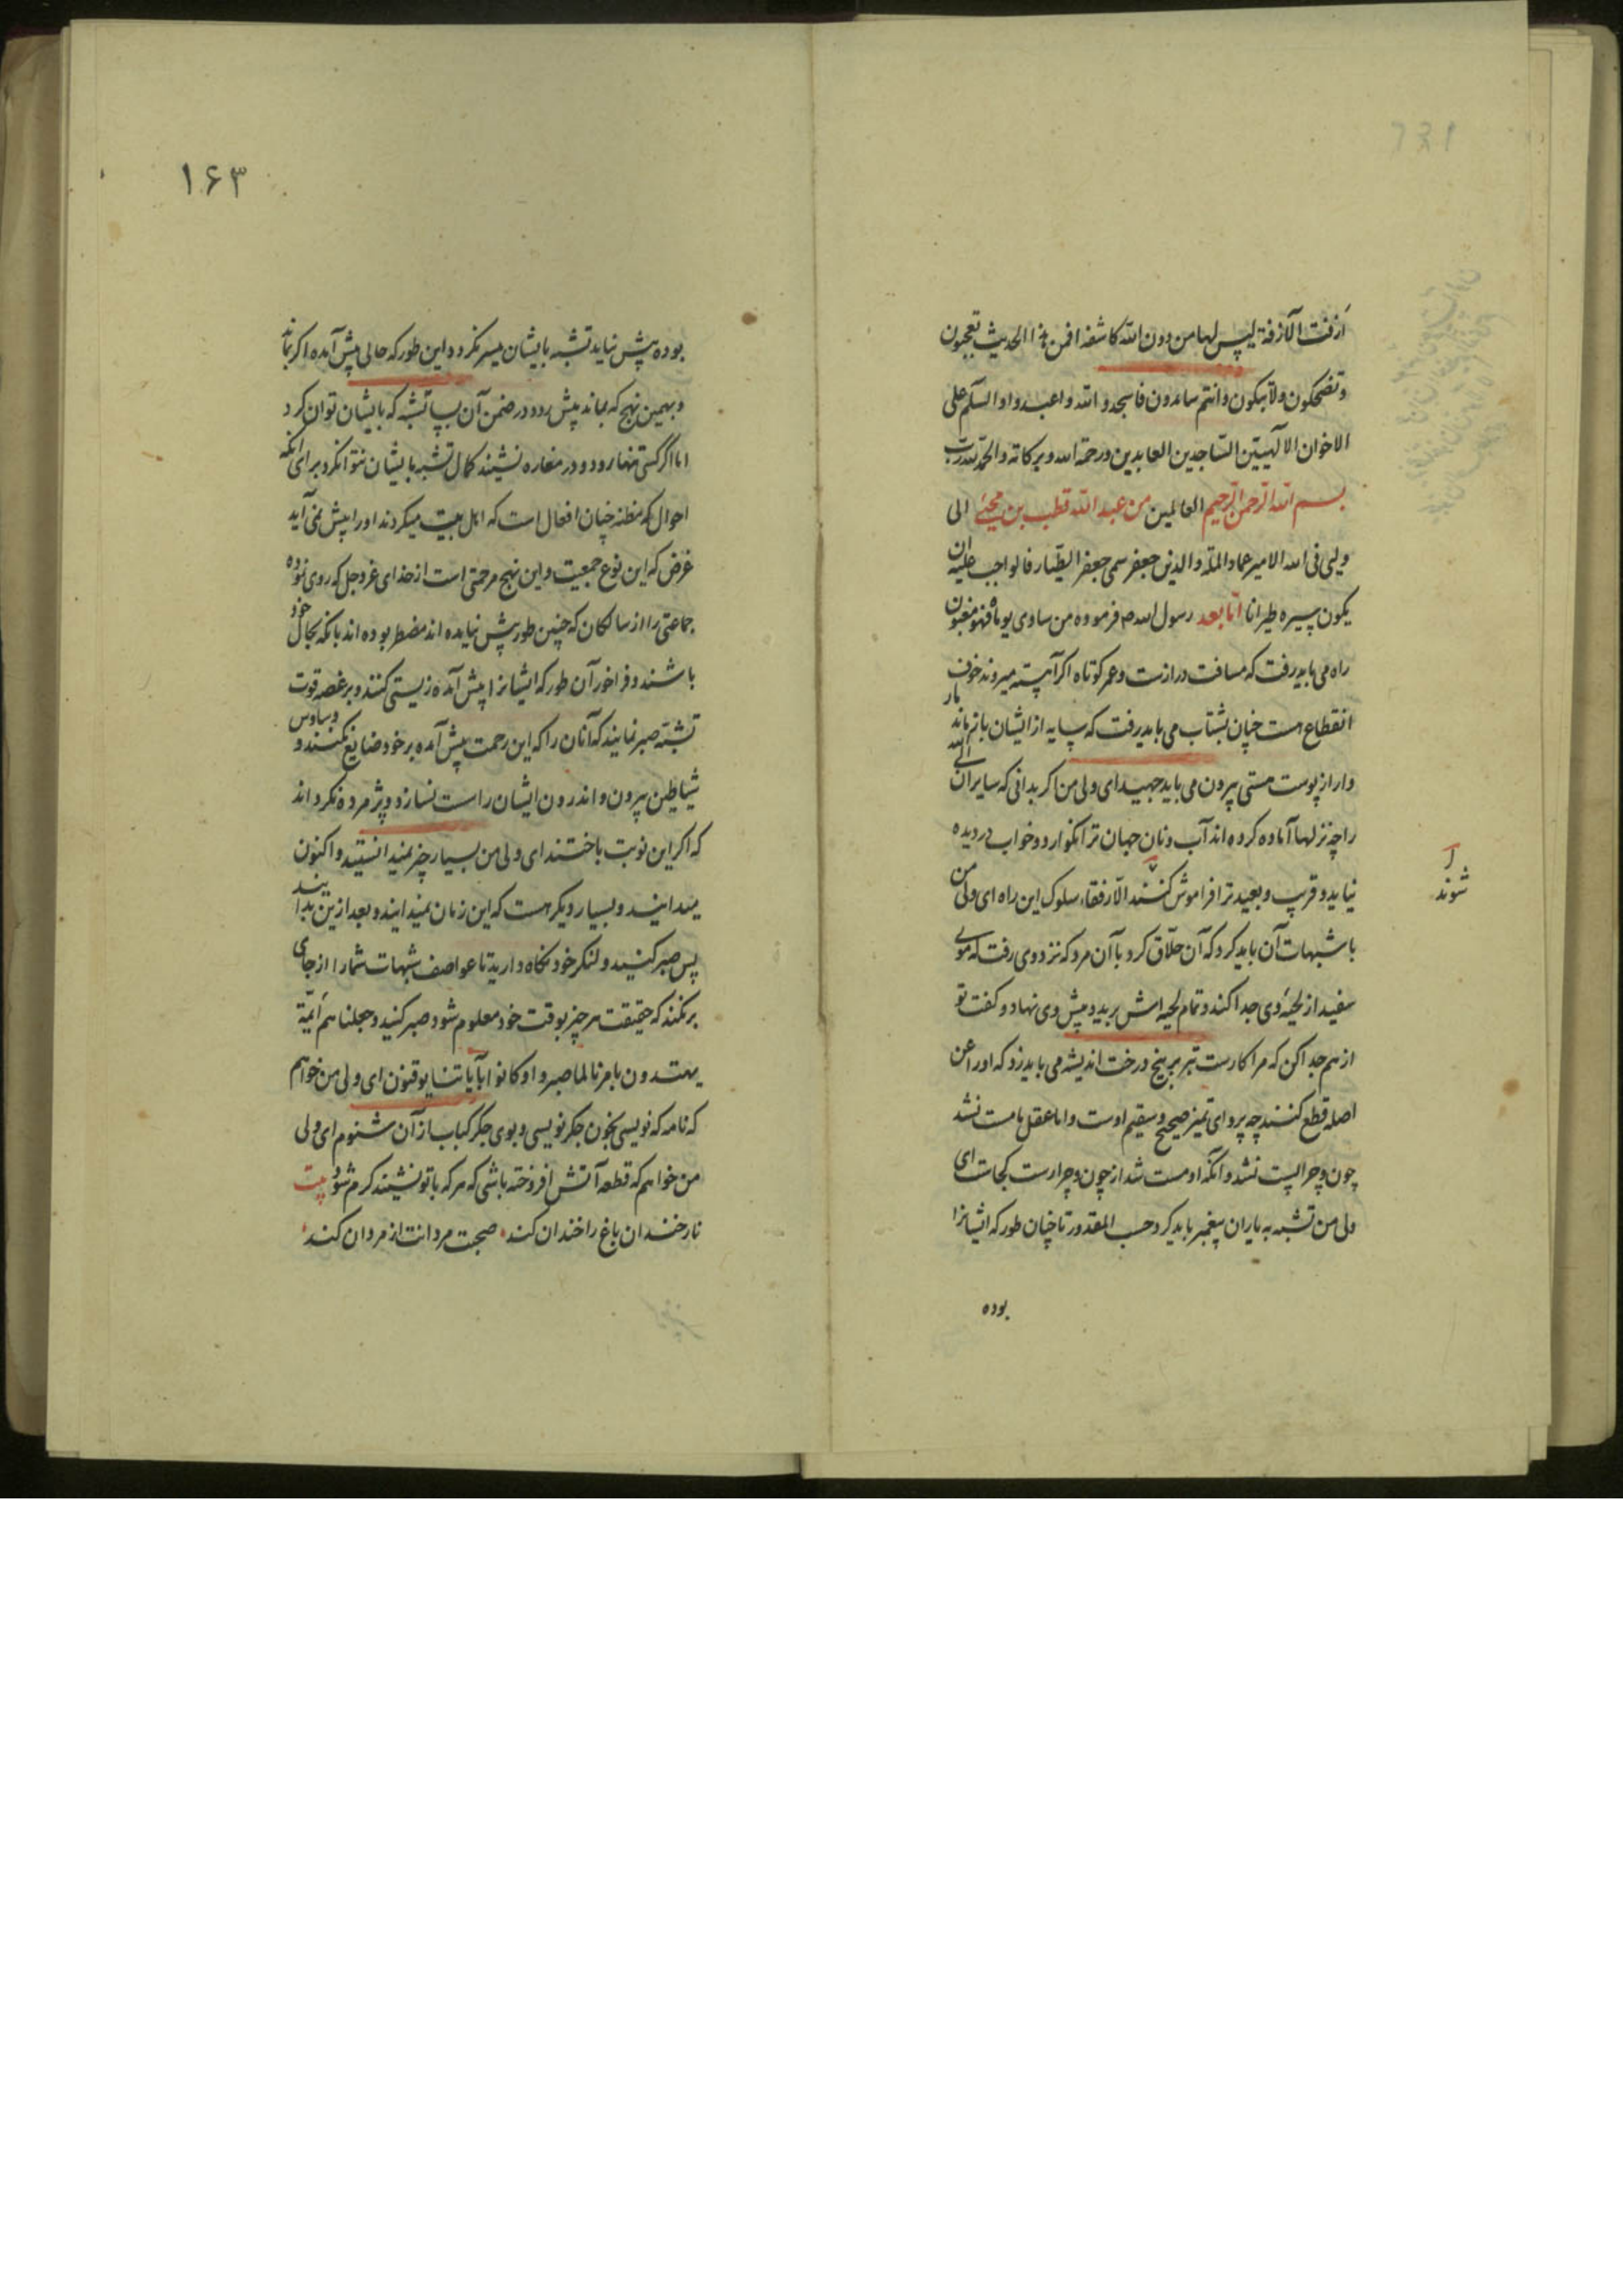 ازفت الآزفة لیس لها من دون الله کاشفة افمن هذا الحدیث تعجبون
و تضحکون ولا تبکون و انتم سامدون فاسجدوا لله و اعبدوا و السلام علی
الاخوان الالهیین الساجدین العابدین و رحمة الله و برکاته و الحمد لله رب
بسم الله الرحمن الرحیم العالمین من عبد الله قطب بن محیی الی
ولیی فی الله الامیر عماد الملة و الدین جعفر سمی جعفر الطیار فالواجب علیه ان
یکون سیره طیرانا اما بعد رسول الله ص فرموده من ساوی یوماه فهو مغبون
راه می باید رفت که مسافت درازست و عمر کوتاه اکر آهسته میروند خوف
انقطاع هست چنان بشتاب می باید رفت که سایه از ایشان باز ماند
وار از پوست هستی بیرون می باید جهید ای ولی من اکر بدانی که سایران الی الله
را چه نزلها آماده کرده اند آب و نان جهان ترا نکوارد و خواب در دیده
نیاید و قریب و بعید ترا فراموش کنند الا رفقاء سلوک این راه ای ولی من
شوند
با شبهات آن باید کرد که آن حلاق کرد با آن مرد که نزد وی رفت که موی
سفید از لحیهٔ وی جدا کند و تمام لحیه اش برید و پیش وی نهاد و کفت تو
از هم جدا کن که مرا کارست تبر بر بیخ درخت اندیشه می باید زد که او را عن
اصله قطع کنند چه پروای تمیز صحیح و سقیم اوست و اما عقل تا مست نشد
چون و چرا پست نشد و آنکه او مست شد از چون و چرا رست کجاست ای
ولی من تشبه به یاران پیغمبر باید کرد حسب المقدور تا چنان طور که ایشانرا
بوده
۱۶۳
بوده پیش نیاید تشبه بایشان میسر نکردد و این طور که حالی پیش آمده اکر بماند
و بهمین نهج که بماند پیش رود در ضمن آن بسیا تشبه که بایشان توان کرد
اما اکر کسی تنها رود و در مغاره نشیند کمال تشبه بایشان نتواند کرد برای آنکه
احوال که مظنهٔ چنان افعال است که اهل بیت میکردند او را پیش نمی آید
غرض که این نوع جمعیت و این نهج مرحمتی است از خدای عز و جل که روی نموده
جماعتی را از سالکان که چنین طور پیش نیامده اند مضطر بوده اند بانکه بحال خود
باشند و فراخور آن طور که ایشانرا پیش آمده زیستی کنند و بر غصه فوت
تشبه صبر نمایند که آنان را که این رحمت پیش آمده بر خود ضایع نکنند و وساوس
شیاطین بیرون و اندرون ایشان راست نسازد و پژمرده نکرداند
که اکر این نوبت باختند ای ولی من بسیار چیز نمیدانستید و اکنون
میدانید و بسیار دیکر هست که این زمان نمیدانید و بعد ازین بدانید
پس صبر کنید و لنکر خود نکاه دارید تا عواصف شبهات شما را از جای
بر نکند که حقیقت هر چیز بوقت خود معلوم شود صبر کنید و جعلناهم ائمة
یهتدون بامرنا لما صبروا و کانوا بآیاتنا یوقنون ای ولی من خواهم
که نامه که نویسی بخون جکر نویسی و بوی جکر کباب از آن شنوم ای ولی
من خواهم که قطعه آتش افروخته باشی که هر که با تو نشیند کرم شود بیت
نار خندان باغ را خندان کند صحبت مردانت از مردان کند